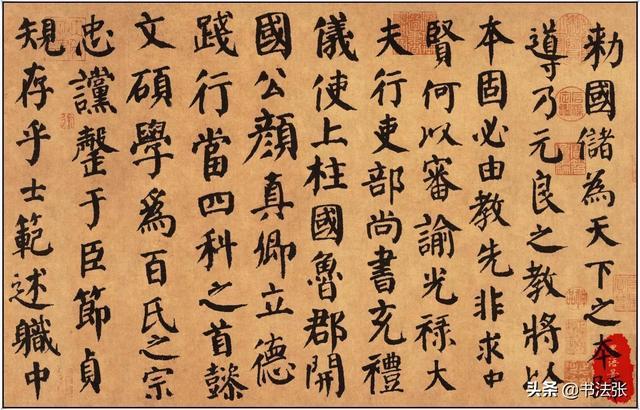 勅國儲為天下之本
導乃元良之教將以
本固必由教先非求中
賢何以審諭光祿大
夫行吏部尚書充禮
儀使上柱國魯郡開
國公顏真卿立德
踐行當四科之首懿
文碩學爲百氏之宗
忠讜罄于臣節貞
規存乎士範述職中
头条 @书法张